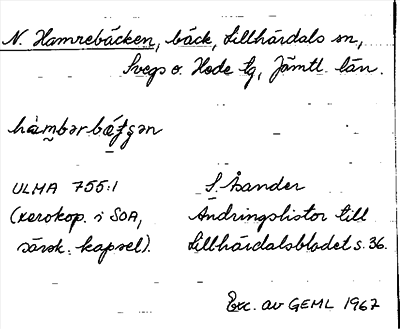 N. Hamrebäcken, bäck, Lillhärdals sn,
Svegs o. Hede tg, Jämtl. län.
hàmbərbǽʃʂən
ULMA 755:1
(xerokop. i SOA,
särsk. kapsel).
S. Åsander
Ändringslistor till
Lillhärdalsbladet s. 36.
Exc. av GEML 1967